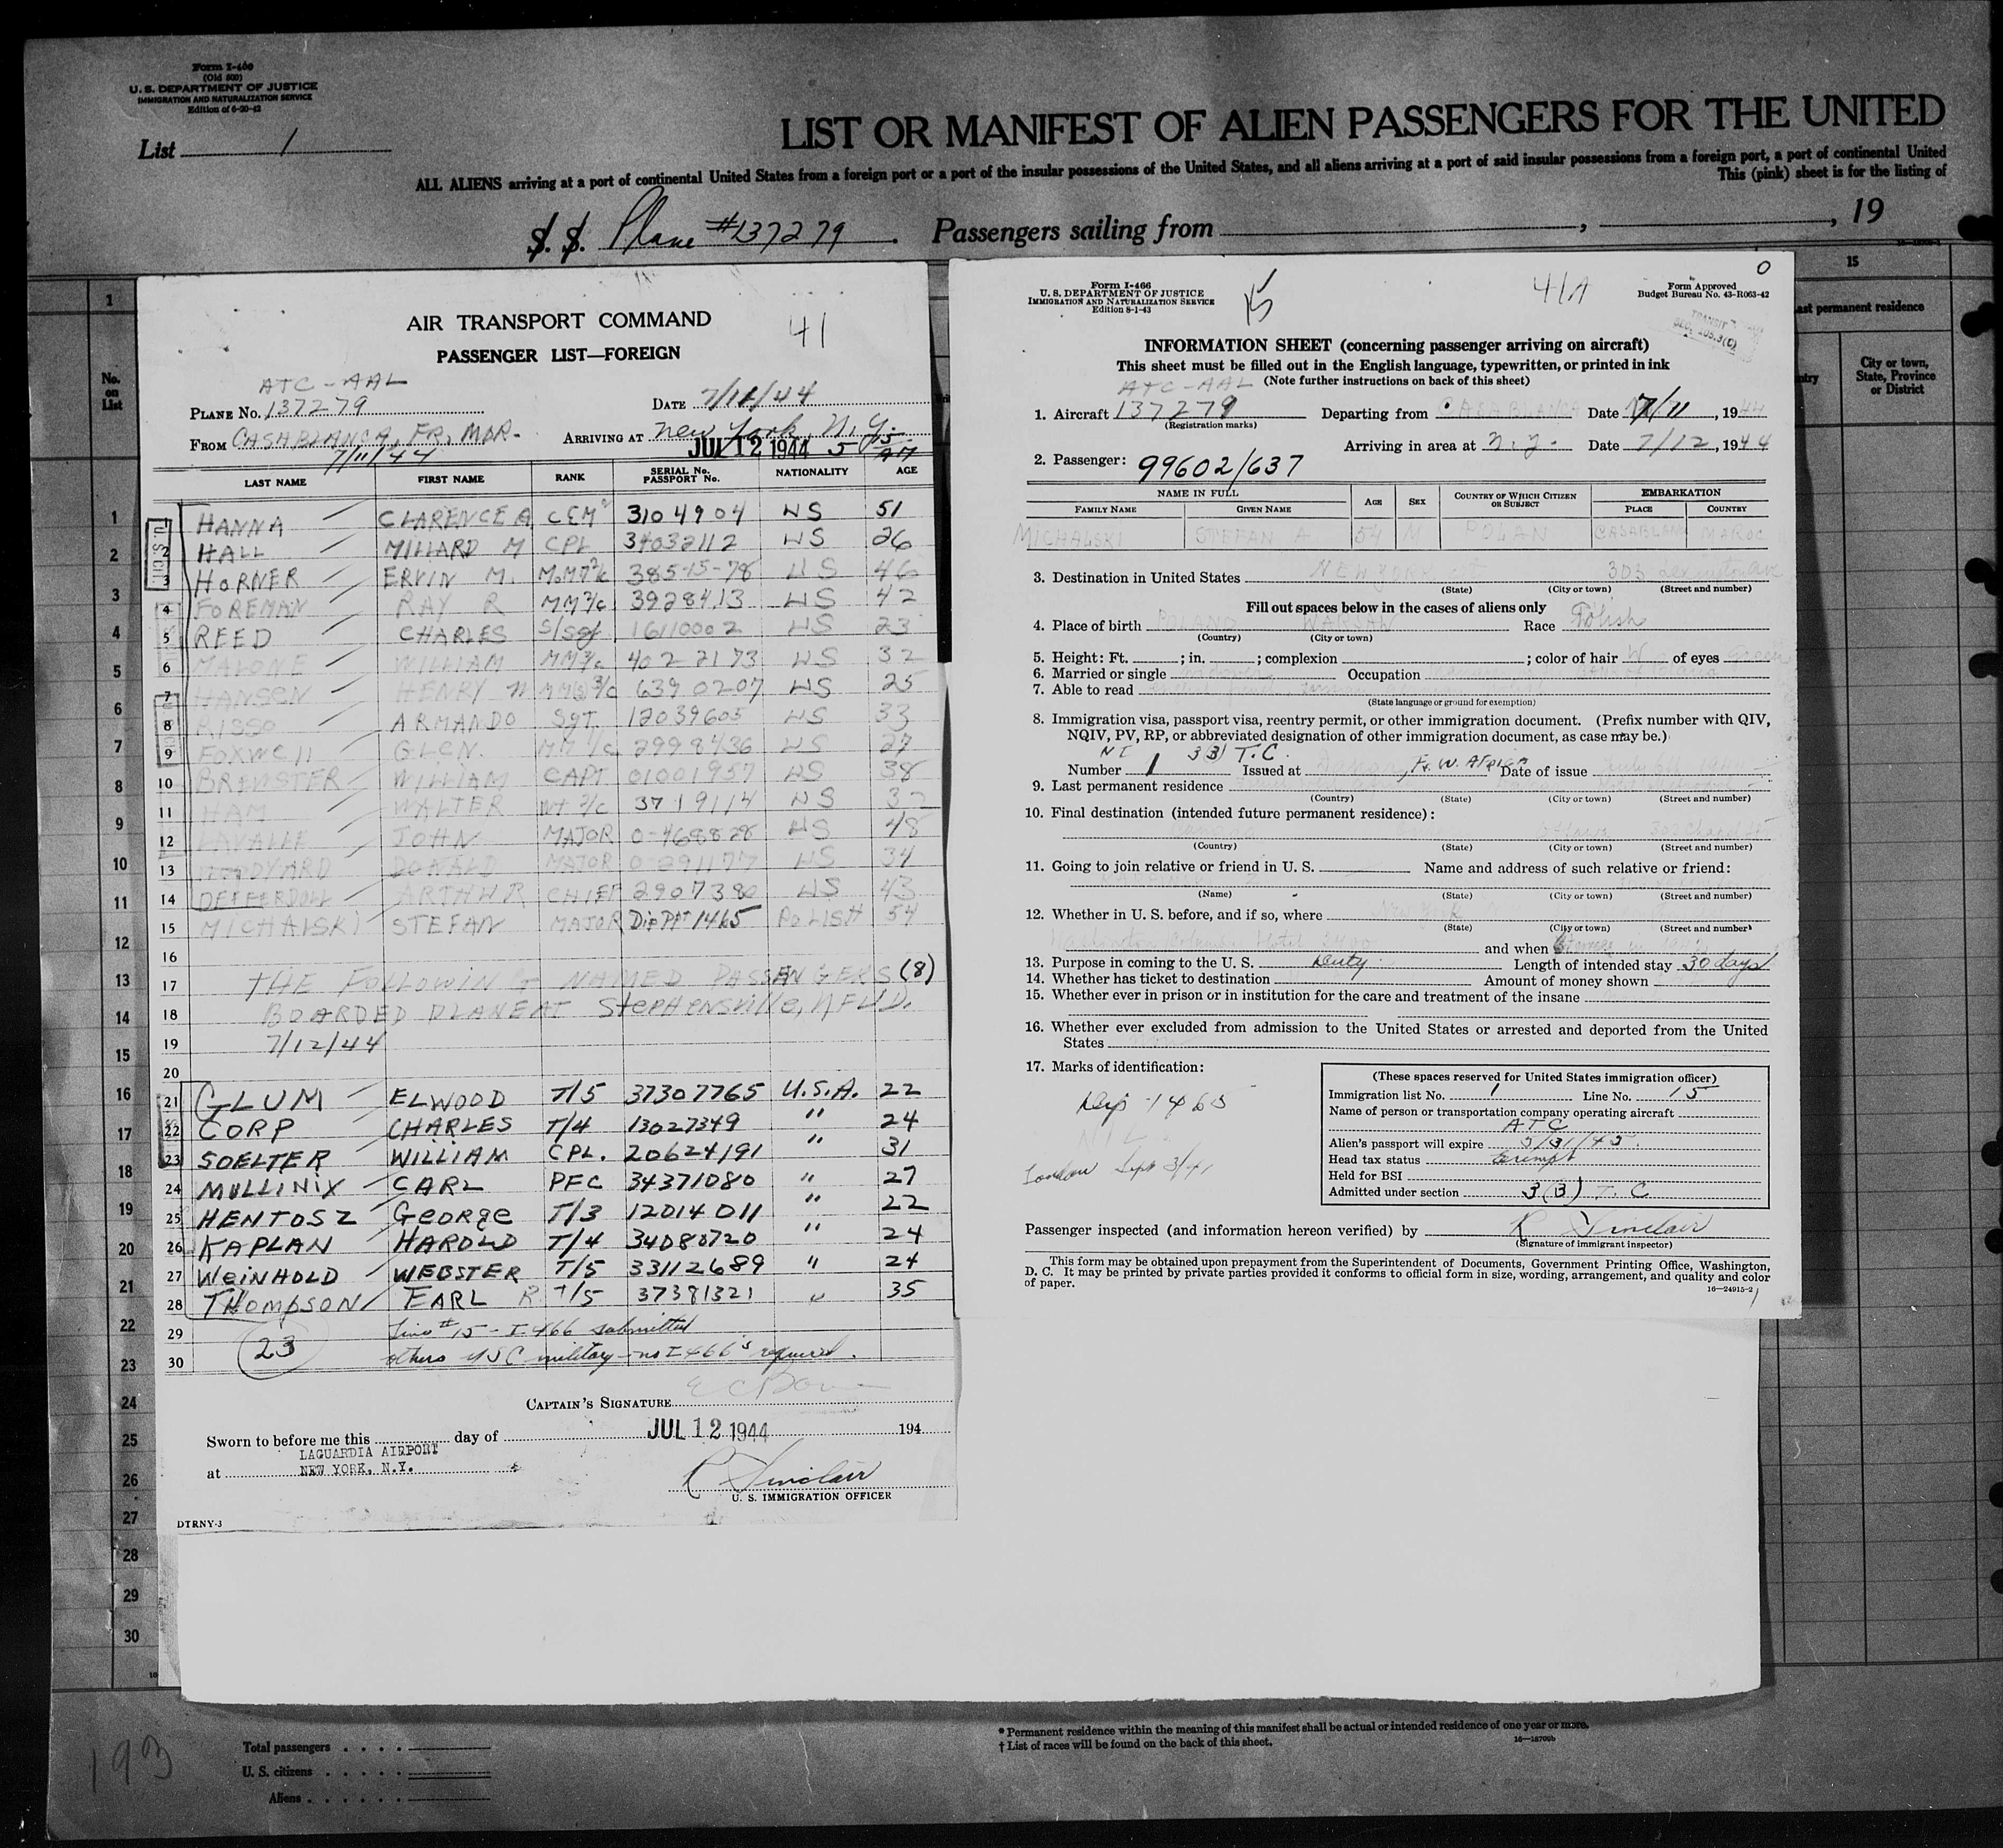 Form I-400
(Old 500)
U. S. DEPARTMENT OF JUSTICE
IMMIGRATION AND NATURALIZATION SERVICE
Edition of 6-20-42
List 1
LIST OR MANIFEST OF ALIEN PASSENGERS FOR THE UNITED
ALL ALIENS arriving at a port of continental United States from a foreign port or a port of the insular possessions of the United States, and all aliens arriving at a port of said insular possessions from a foreign port, a port of continental United
This (pink) sheet is for the listing of
S. S. Plane #137279. Passengers sailing from , , 19
1
No. on List
AIR TRANSPORT COMMAND
41
PASSENGER LIST—FOREIGN
ATC-AAL
PLANE No. 137279 DATE 7/11/44
FROM CASABLANCA, FR, MOR. ARRIVING AT New York, N.Y.
7/11/44 JUL 12 1944 5 15 AM
LAST NAME FIRST NAME RANK SERIAL No. PASSPORT No. NATIONALITY AGE
1 HANNA CLARENCE A CEM 3104904 US 51
2 HALL MILLARD M CPL 34032112 US 26
3 HORNER ERVIN M. MoMM2/c 385-15-78 US 46
4 FOREMAN RAY R MM2/c 3928413 US 42
5 REED CHARLES S/Sgt 16110002 US 23
6 MALONE WILLIAM MM3/c 4022173 US 32
7 HANSEN HENRY 3/c 6390207 US 25
8 RISSO ARMANDO Sgt. 12039605 US 33
9 FOXWELL GLEN. MM 2998436 US 27
10 BREWSTER WILLIAM CAPT 01001957 US 38
11 HAM WALTER 3719114 US
12 LAVALLE JOHN MAJOR 0-468828 US 48
13 DONALD MAJOR 0-291177 US 34
14 DEFFERDOLL ARTHUR CHIEF 2907380 US 43
15 MICHALSKI STEFAN MAJOR Dip PPt 1465 POLISH 54
16
17 THE FOLLOWING NAMED PASSENGERS (8)
18 BOARDED PLANE AT STEPHENSVILLE, NFLD.
19 7/12/44
20
21 GLUM ELWOOD T/5 37307765 U.S.A. 22
22 CORP CHARLES T/4 13027349 " 24
23 SOELTER WILLIAM CPL. 20624191 " 31
24 MULLINIX CARL PFC 34371080 " 27
25 HENTOSZ GEORGE T/3 12014011 " 22
26 KAPLAN HAROLD T/4 34080720 " 24
27 WEINHOLD WEBSTER T/5 33112689 " 24
28 THOMPSON EARL R T/5 37381321 " 35
29 Line #15 - I-466 submitted
30 23 others USC military - no I-466's required.
CAPTAIN'S SIGNATURE
Sworn to before me this day of JUL 12 1944 194
at LAGUARDIA AIRPORT
NEW YORK, N.Y.
R Sinclair
U. S. IMMIGRATION OFFICER
DTRNY-3
Form I-466
U. S. DEPARTMENT OF JUSTICE
IMMIGRATION AND NATURALIZATION SERVICE
Edition 8-1-43
15
41A
0
Form Approved
Budget Bureau No. 43-R063-42
INFORMATION SHEET (concerning passenger arriving on aircraft)
This sheet must be filled out in the English language, typewritten, or printed in ink
(Note further instructions on back of this sheet)
ATC-AAL
1. Aircraft 137279 Departing from CASABLANCA Date 7/11, 1944
(Registration marks)
Arriving in area at N.Y. Date 7/12, 1944
2. Passenger: 99602/637
NAME IN FULL AGE SEX COUNTRY OF WHICH CITIZEN OR SUBJECT EMBARKATION
FAMILY NAME GIVEN NAME PLACE COUNTRY
MICHALSKI STEFAN A 54 M POLAN CASABLAN MAROC
3. Destination in United States NEW YORK 303 Lexington Ave
(State) (City or town) (Street and number)
Fill out spaces below in the cases of aliens only
4. Place of birth POLAND WARSAW Race Polish
(Country) (City or town)
5. Height: Ft. ; in. ; complexion ; color of hair of eyes Green
6. Married or single Occupation
7. Able to read
(State language or ground for exemption)
8. Immigration visa, passport visa, reentry permit, or other immigration document. (Prefix number with QIV,
NQIV, PV, RP, or abbreviated designation of other immigration document, as case may be.)
NI 3(3) T.C.
Number 1 Issued at Dakar, Fr. W. Africa Date of issue
9. Last permanent residence
(Country) (State) (City or town) (Street and number)
10. Final destination (intended future permanent residence):
(Country) (State) (City or town) (Street and number)
11. Going to join relative or friend in U. S. Name and address of such relative or friend:
(Name) (State) (City or town) (Street and number)
12. Whether in U. S. before, and if so, where New York
(State) (City or town) (Street and number)
and when
13. Purpose in coming to the U. S. Duty Length of intended stay 30 days
14. Whether has ticket to destination Amount of money shown
15. Whether ever in prison or in institution for the care and treatment of the insane
16. Whether ever excluded from admission to the United States or arrested and deported from the United
States
17. Marks of identification:
Dip 1465
NIL
London Sept 3/41
(These spaces reserved for United States immigration officer)
Immigration list No. 1 Line No. 15
Name of person or transportation company operating aircraft
ATC
Alien's passport will expire 3/31/45.
Head tax status Exempt
Held for BSI
Admitted under section 3(3) T. C
Passenger inspected (and information hereon verified) by R Sinclair
(Signature of immigrant inspector)
This form may be obtained upon prepayment from the Superintendent of Documents, Government Printing Office, Washington,
D. C. It may be printed by private parties provided it conforms to official form in size, wording, arrangement, and quality and color
of paper.
16—24915-2
15
ast permanent residence
ntry
City or town, State, Province or District
1
2
3
4
5
6
7
8
9
10
11
12
13
14
15
16
17
18
19
20
21
22
23
24
25
26
27
28
29
30
193
Total passengers
U. S. citizens
Aliens
* Permanent residence within the meaning of this manifest shall be actual or intended residence of one year or more.
† List of races will be found on the back of this sheet.
16—18700b